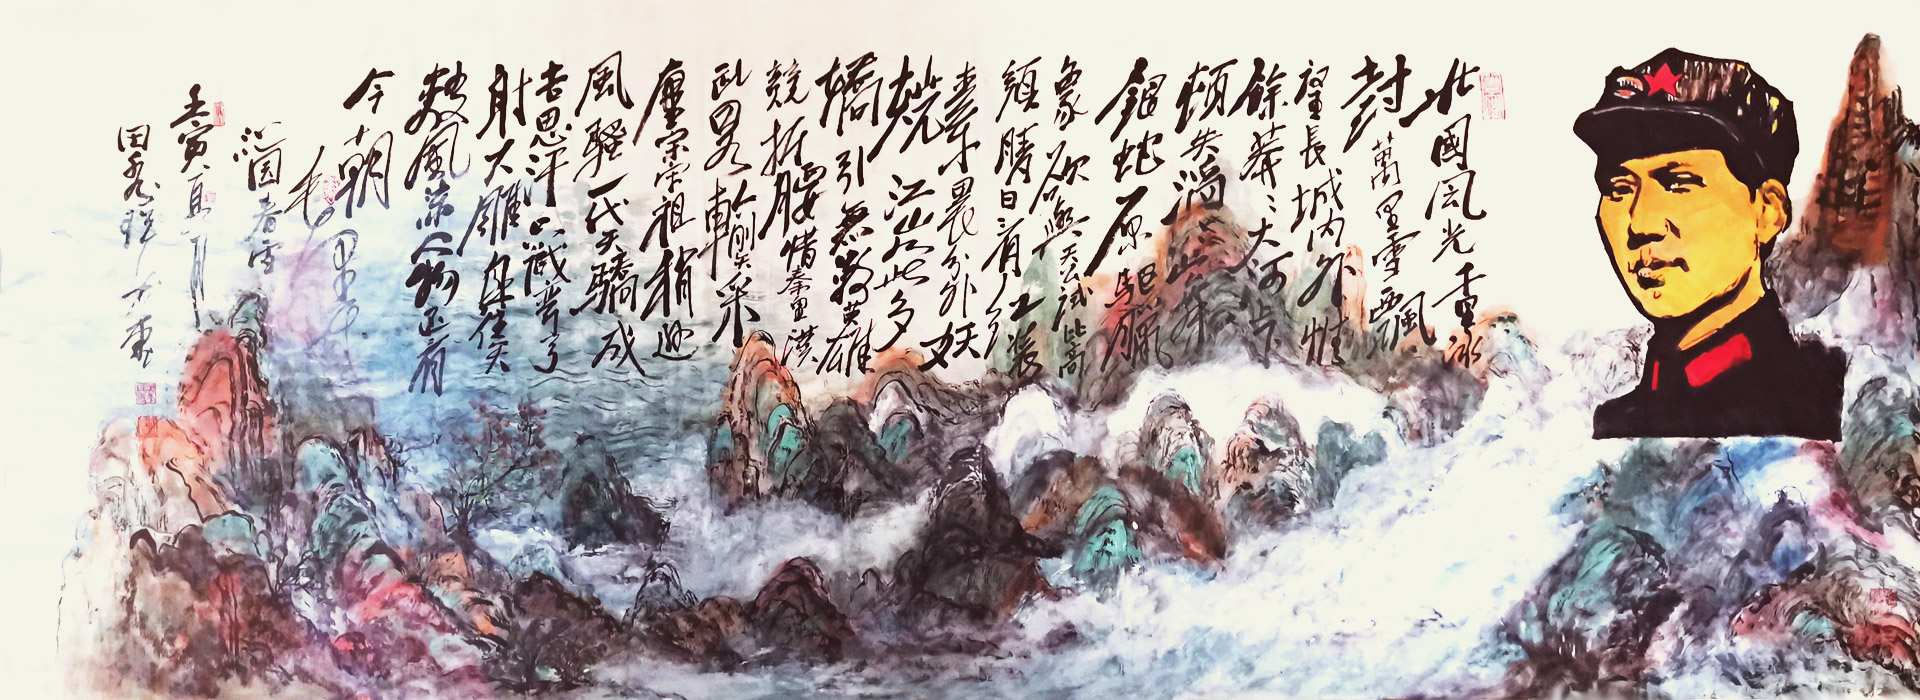 北國風光千里冰
封萬里雪飄
望長城內外惟
餘莽〻大河上下
頓失滔〻山舞
銀蛇原馳臘
象欲與天公試比高
須晴日看紅裝
素裹分外妖
嬈江山如此多
嬌引無數英雄
競折腰惜秦皇漢
武略輸文采
唐宗宋祖稍遜
風騷一代天驕成
吉思汗只識彎弓
射大雕俱往矣
數風流人物還看
今朝
毛澤東
沁園春雪
壬寅夏月